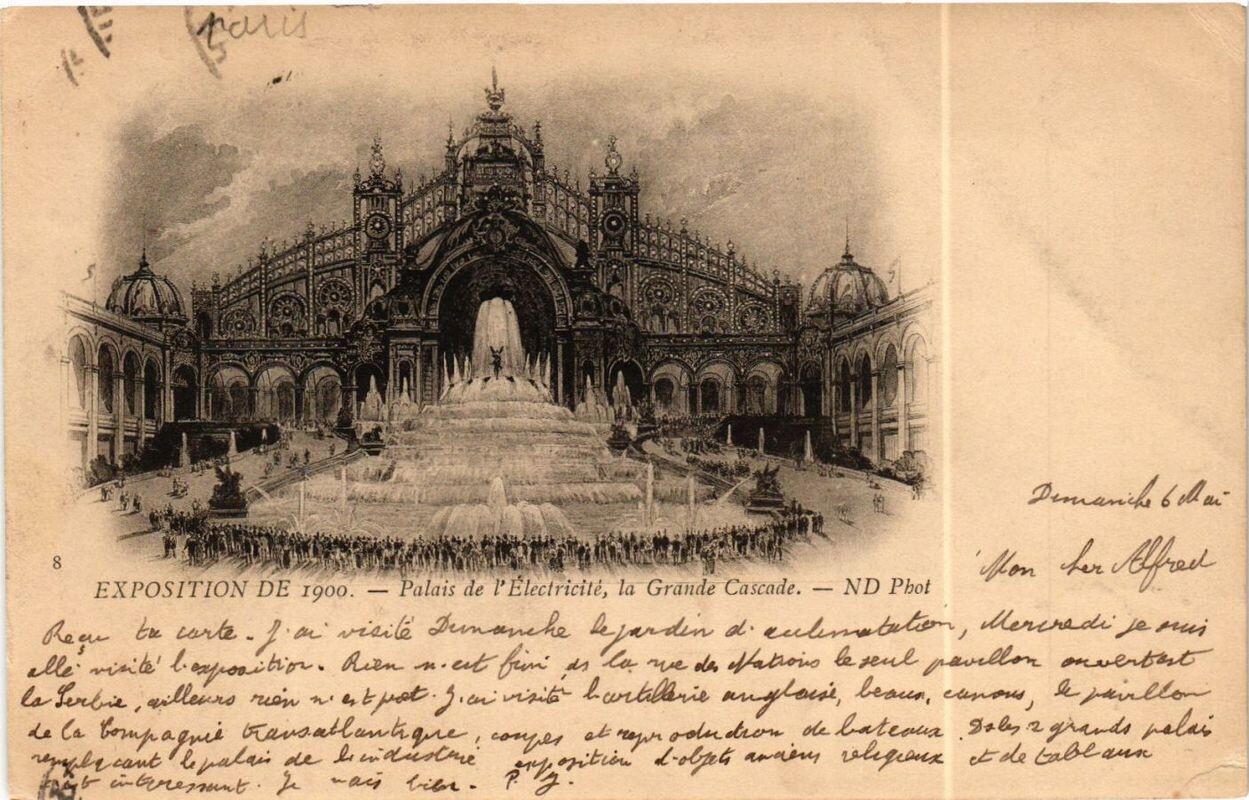 Paris
8
EXPOSITION DE 1900. — Palais de l'Électricité, la Grande Cascade. — ND Phot
Dimanche 6 Mai
Mon cher Alfred
Reçu ta carte. J'ai visité Dimanche le jardin d'acclimatation, Mercredi je suis
allé visité l'exposition. Rien n'est fini, ds la rue des Nations le seul pavillon ouvert est
la Serbie, ailleurs rien n'est pret. J'ai visité l'artillerie anglaise, beaux canons, le pavillon
de la Compagnie transatlantique, coupes et reproduction de bateaux. Ds les 2 grands palais
remplaçant le palais de l'industrie exposition d'objets anciens religieux et de tableaux
interessant. Je vais bien. P. J.